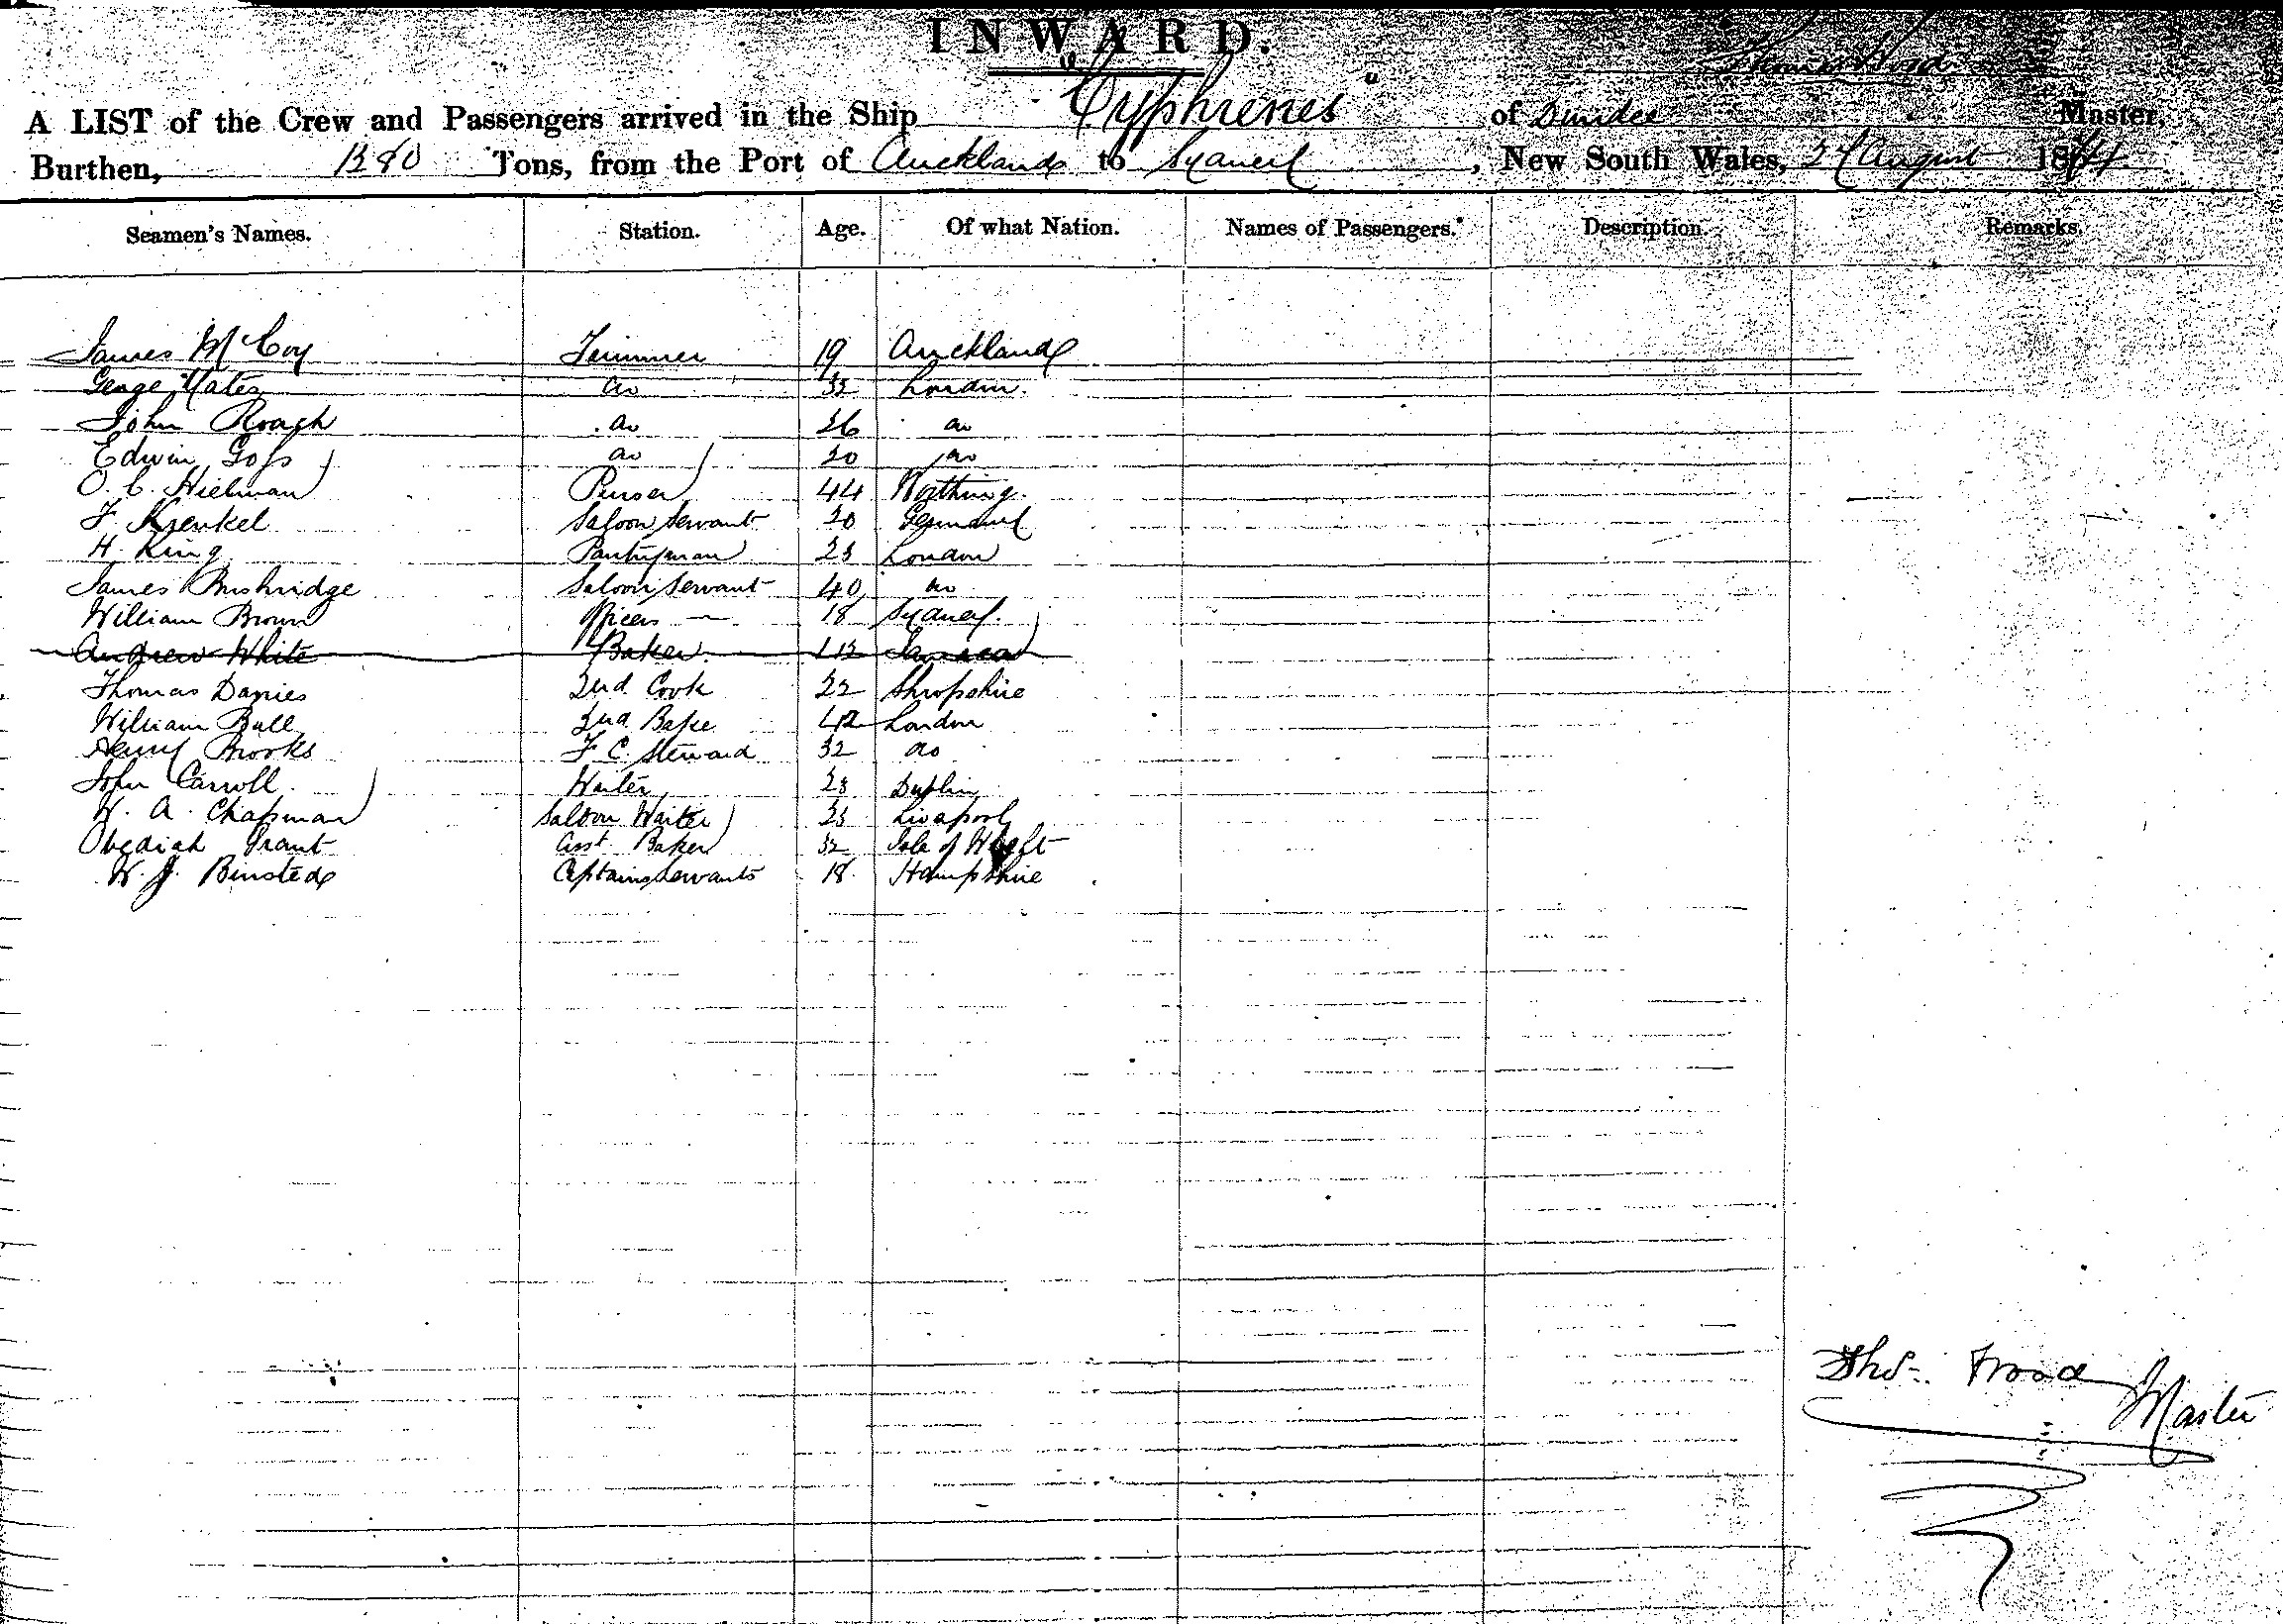 INWARD.
Thomas Wood
A LIST of the Crew and Passengers arrived in the Ship "Cyphrenes" of Dundee Master,
Burthen, 1280 Tons, from the Port of Auckland to Sydney, New South Wales, 27 August 1874
Seamen's Names. Station. Age. Of what Nation. Names of Passengers. Description. Remarks.
James McCoy Trimmer 19 Auckland
George Yates do 33 London
John Roach do 26 do
Edwin Goss do 20 do
O. C. Hielman Purser 44 Worthing
F. Krenkel Saloon Servant 20 Germany
H. King Pantryman 23 London
James Bushridge Saloon Servant 40 do
William Brown Officers — 18 Sydney
Andrew White Baker Jamaica
Thomas Davies 2nd Cook 22 Shropshire
William Bull 2nd Bake 42 London
Henry Brooks F C Steward 32 do
John Carroll Waiter 23 Dublin
W. A. Chapman Saloon Waiter 23 Liverpool
Obediah Grant Asst Baker 32 Isle of Wight
W. J. Binsted Captains Servant 18 Hampshire
Thos. Wood Master